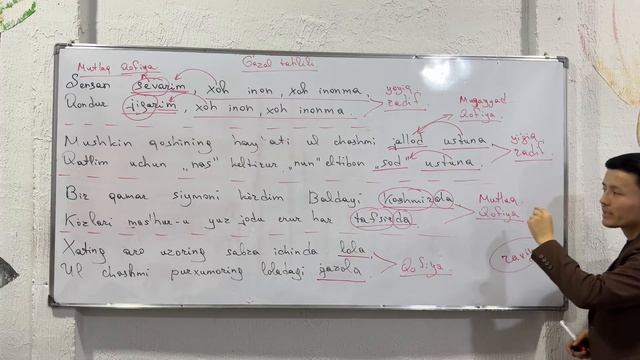 Mutlaq Qofiya
G'azal tahlili
Sensan sevarim, xoh inon, xoh inonma.
Qondur jigarim, xoh inon, xoh inonma.
yoyiq
radif
Muqayyad
Qofiya
Mushkin qoshining hay'ati ul chashmi jallod ustuna
Qatlim uchun „nas" keltirur „nun" eltibon „sod" ustuna.
yoyiq
radif
Bir qamar siymoni ko'rdim Baldayi Kashmirda
Ko'zlari mas'hur-u yuz jodu erur har tafsirda
Mutlaq
Qofiya
Xating aro uzoring sabza ichinda lola
Ul chashmi purxumoring loladagi g'azola
Qofiya